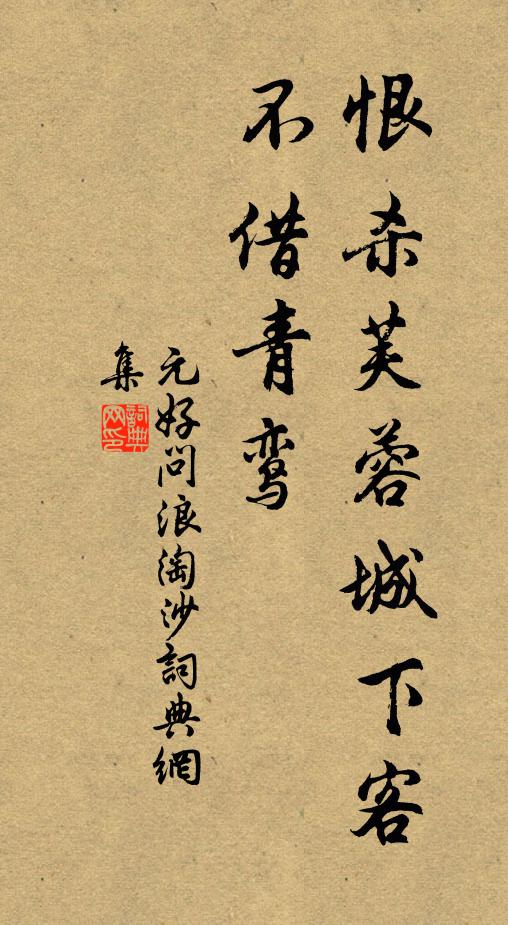 恨杀芙蓉城下客
不借青鸾
元好问浪淘沙詞典網
集
詞典網印